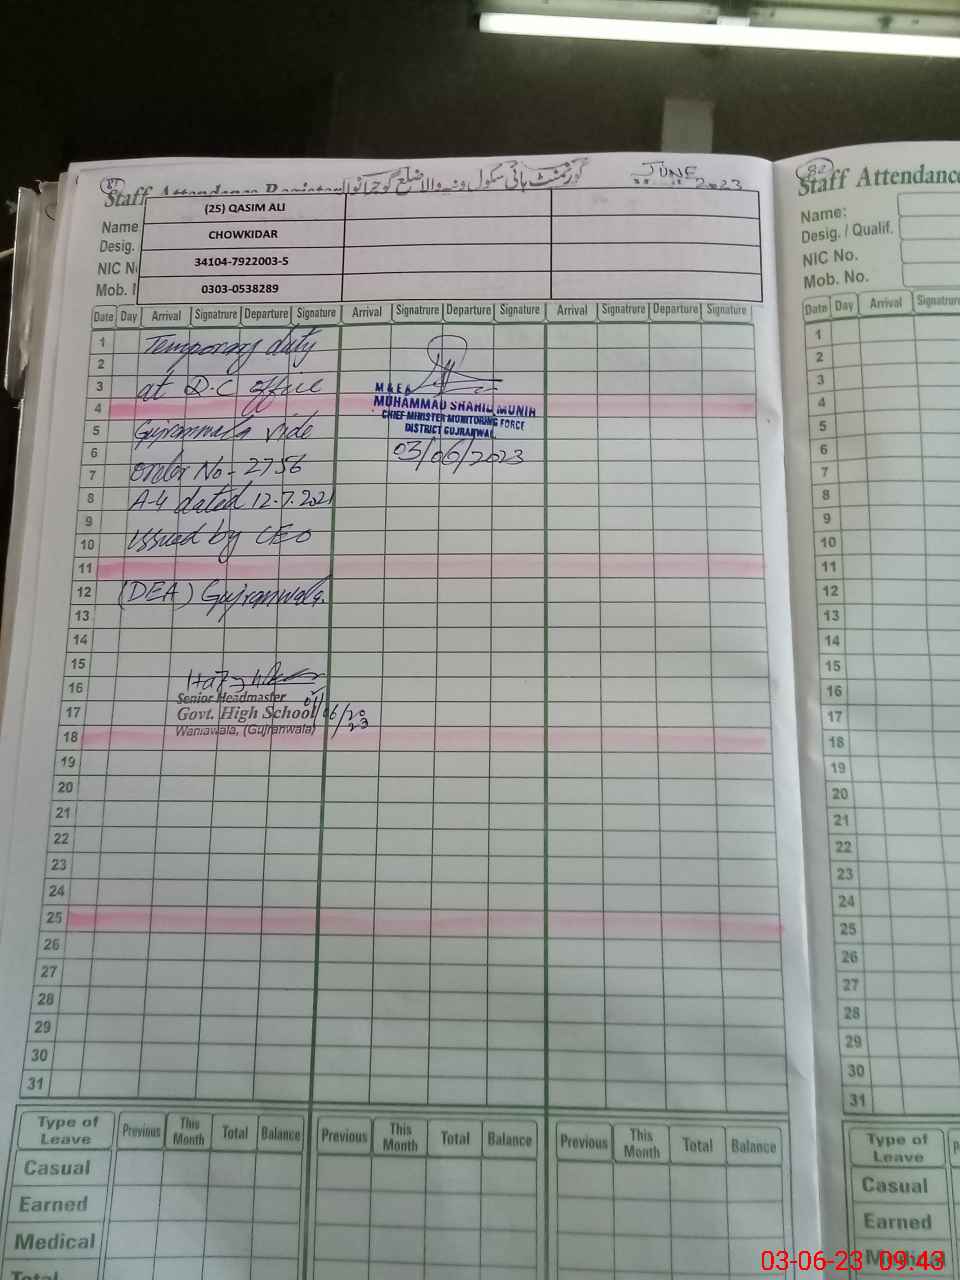 81
82
Staff Attendance Register
گورنمنٹ ہائی سکول ونیہ والا ضلع گوجرانوالہ
JUNE 2023
Staff Attendance
Name
(25) QASIM ALI
Desig.
CHOWKIDAR
NIC N
34104-7922003-5
Mob. 
0303-0538289
Name:
Desig. / Qualif.
NIC No.
Mob. No.
Date Day Arrival Signatrure Departure Signature Arrival Signatrure Departure Signature Arrival Signatrure Departure Signature
Date Day Arrival Signatrure
1 Temporary duty
2
3 at D.C office
4
5 Gujranwala vide
6
7 order No- 2756
8 A-4 dated 12.7.2021
9
10 issued by CEO
11
12 (DEA) Gujranwala.
13
14
15
16
17
18
19
20
21
22
23
24
25
26
27
28
29
30
31
M & E A
MUHAMMAD SHAHID MUNIR
CHIEF MINISTER MONITORING FORCE
DISTRICT GUJRANWAL
03/06/2023
Senior Headmaster
Govt. High School
Waniawala, (Gujranwala)
01/06/2023
1
2
3
4
5
6
7
8
9
10
11
12
13
14
15
16
17
18
19
20
21
22
23
24
25
26
27
28
29
30
31
Type of Leave Previous This Month Total Balance Previous This Month Total Balance Previous This Month Total Balance
Casual
Earned
Medical
Total
Type of Leave
Casual
Earned
Medical
03-06-23 09:43